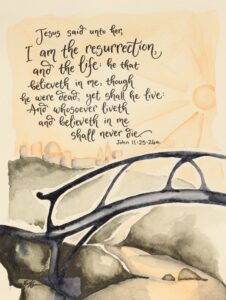 Jesus said unto her,
I am the resurrection,
and the life: he that
believeth in me, though
he were dead, yet shall he live:
And whosoever liveth
and believeth in me
shall never die.
John 11:25-26a